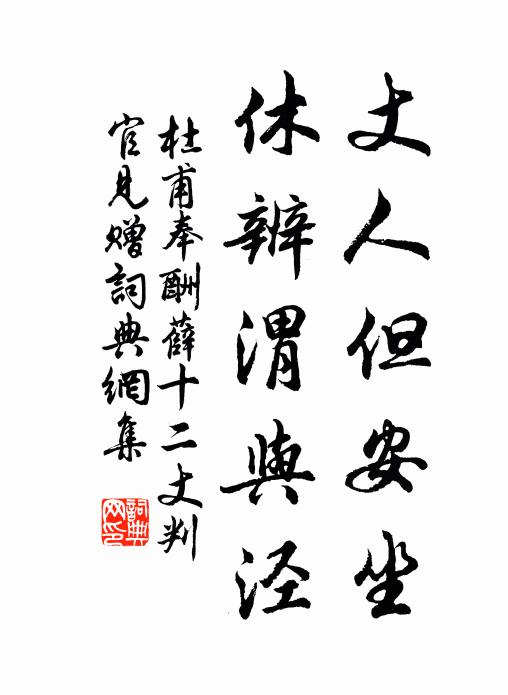 丈人但安坐
休辨渭與涇
杜甫奉酬薛十二丈判
官見贈詞典網集
詞典
网印